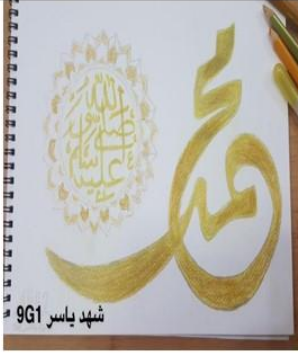 محمد
صلى الله عليه وسلم
شهد ياسر 9G1